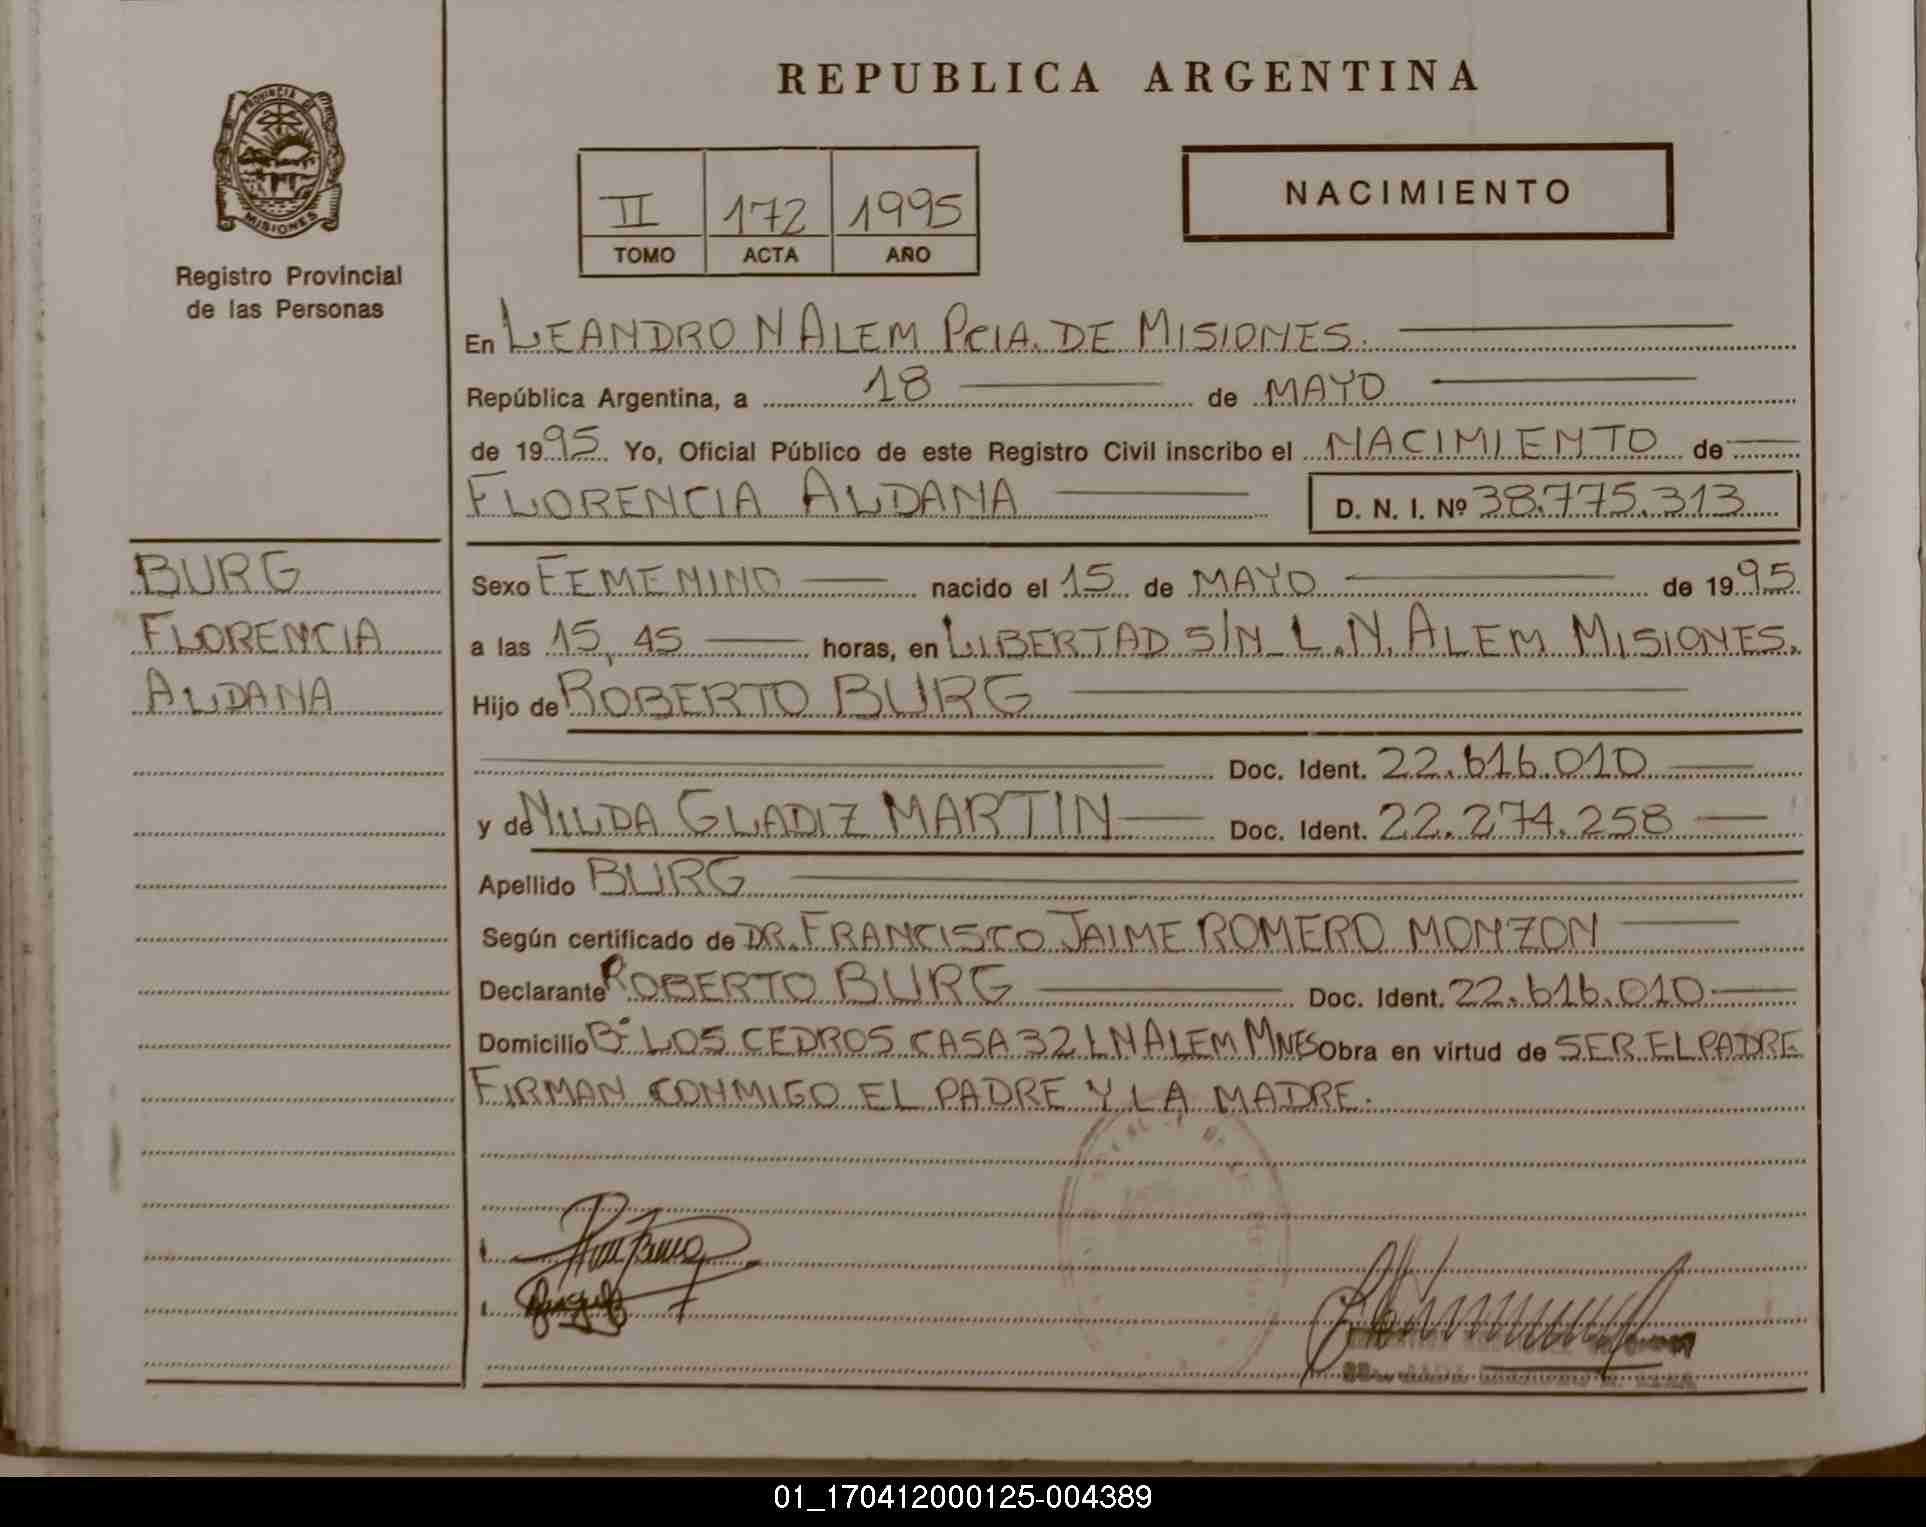 REPUBLICA ARGENTINA
PROVINCIA DE
MISIONES
Registro Provincial
de las Personas
II 172 1995
TOMO ACTA AÑO
NACIMIENTO
En LEANDRO N ALEM PCIA. DE MISIONES.
República Argentina, a 18 de MAYO
de 1995 Yo, Oficial Público de este Registro Civil inscribo el NACIMIENTO de
FLORENCIA ALDANA D. N. I. Nº 38.775.313
BURG
FLORENCIA
ALDANA
Sexo FEMENINO nacido el 15 de MAYO de 1995
a las 15,45 horas, en LIBERTAD S/N L.N. ALEM MISIONES.
Hijo de ROBERTO BURG
Doc. Ident. 22.616.010
y de NILDA GLADIZ MARTIN Doc. Ident. 22.274.258
Apellido BURG
Según certificado de DR. FRANCISCO JAIME ROMERO MONZON
Declarante ROBERTO BURG Doc. Ident. 22.616.010
Domicilio Bº LOS CEDROS CASA 32 L N ALEM MNES Obra en virtud de SER EL PADRE
FIRMAN CONMIGO EL PADRE Y LA MADRE.
01_170412000125-004389